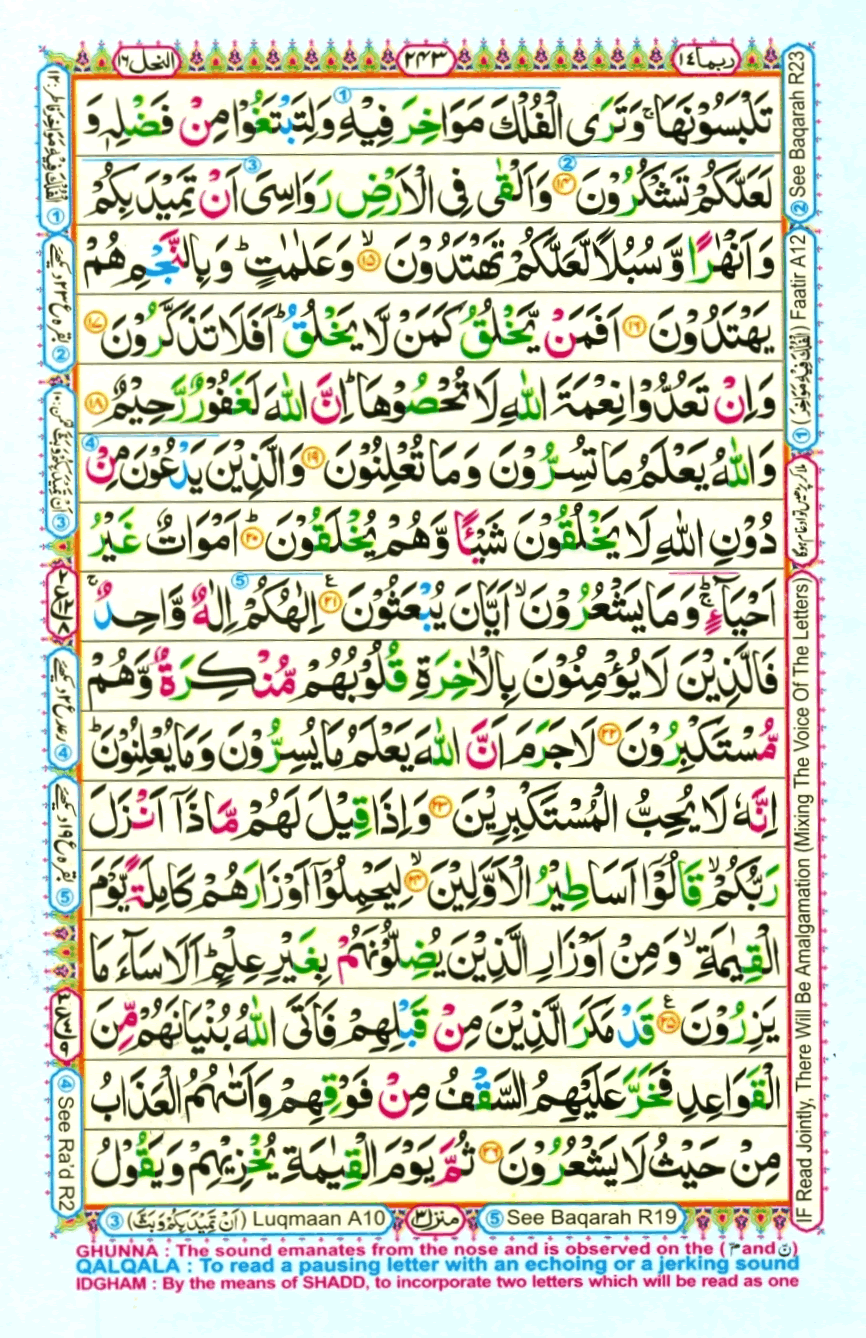 النحل ١٦
٢٤٣
ربما ١٤
تَلْبَسُوْنَهَا ۚ وَتَرَى الْفُلْكَ مَوَاخِرَ فِيْهِ وَلِتَبْتَغُوْا مِنْ فَضْلِهٖ وَ
لَعَلَّكُمْ تَشْكُرُوْنَ ﴿۱۴﴾ وَاَلْقٰى فِى الْاَرْضِ رَوَاسِىَ اَنْ تَمِيْدَ بِكُمْ
وَاَنْهٰرًا وَّسُبُلًا لَّعَلَّكُمْ تَهْتَدُوْنَ ﴿۱۵﴾ۙ وَعَلٰمٰتٍ ؕ وَبِالنَّجْمِ هُمْ
يَهْتَدُوْنَ ﴿۱۶﴾ اَفَمَنْ يَّخْلُقُ كَمَنْ لَّا يَخْلُقُ ؕ اَفَلَا تَذَكَّرُوْنَ ﴿۱۷﴾
وَاِنْ تَعُدُّوْا نِعْمَةَ اللّٰهِ لَا تُحْصُوْهَا ؕ اِنَّ اللّٰهَ لَغَفُوْرٌ رَّحِيْمٌ ﴿۱۸﴾
وَاللّٰهُ يَعْلَمُ مَا تُسِرُّوْنَ وَمَا تُعْلِنُوْنَ ﴿۱۹﴾ وَالَّذِيْنَ يَدْعُوْنَ مِنْ
دُوْنِ اللّٰهِ لَا يَخْلُقُوْنَ شَيْئًا وَّهُمْ يُخْلَقُوْنَ ؕ ﴿۲۰﴾ اَمْوَاتٌ غَيْرُ
اَحْيَآءٍ ۚ وَمَا يَشْعُرُوْنَ ۙ اَيَّانَ يُبْعَثُوْنَ ﴿۲۱﴾ اِلٰهُكُمْ اِلٰهٌ وَّاحِدٌ ۚ
فَالَّذِيْنَ لَا يُؤْمِنُوْنَ بِالْاٰخِرَةِ قُلُوْبُهُمْ مُّنْكِرَةٌ وَّهُمْ
مُّسْتَكْبِرُوْنَ ﴿۲۲﴾ لَا جَرَمَ اَنَّ اللّٰهَ يَعْلَمُ مَا يُسِرُّوْنَ وَمَا يُعْلِنُوْنَ ؕ
اِنَّهٗ لَا يُحِبُّ الْمُسْتَكْبِرِيْنَ ﴿۲۳﴾ وَاِذَا قِيْلَ لَهُمْ مَّاذَآ اَنْزَلَ
رَبُّكُمْ ۙ قَالُوْٓا اَسَاطِيْرُ الْاَوَّلِيْنَ ﴿۲۴﴾ۙ لِيَحْمِلُوْٓا اَوْزَارَهُمْ كَامِلَةً يَّوْمَ
الْقِيٰمَةِ ۙ وَمِنْ اَوْزَارِ الَّذِيْنَ يُضِلُّوْنَهُمْ بِغَيْرِ عِلْمٍ ؕ اَلَا سَآءَ مَا
يَزِرُوْنَ ﴿۲۵﴾ قَدْ مَكَرَ الَّذِيْنَ مِنْ قَبْلِهِمْ فَاَتَى اللّٰهُ بُنْيَانَهُمْ مِّنَ
الْقَوَاعِدِ فَخَرَّ عَلَيْهِمُ السَّقْفُ مِنْ فَوْقِهِمْ وَاَتٰىهُمُ الْعَذَابُ
مِنْ حَيْثُ لَا يَشْعُرُوْنَ ﴿۲۶﴾ ثُمَّ يَوْمَ الْقِيٰمَةِ يُخْزِيْهِمْ وَيَقُوْلُ
② See Baqarah R23
① (الْفُلْكَ فِيْهِ مَوَاخِرَ) Faatir A12
IF Read Jointly, There Will Be Amalgamation (Mixing The Voice Of The Letters)
④ See Ra'd R2
③ (اَنْ تَمِيْدَ بِكُمْ وَبَثَّ) Luqmaan A10
منزل ٣
⑤ See Baqarah R19
GHUNNA : The sound emanates from the nose and is observed on the (نّ and مّ)
QALQALA : To read a pausing letter with an echoing or a jerking sound
IDGHAM : By the means of SHADD, to incorporate two letters which will be read as one